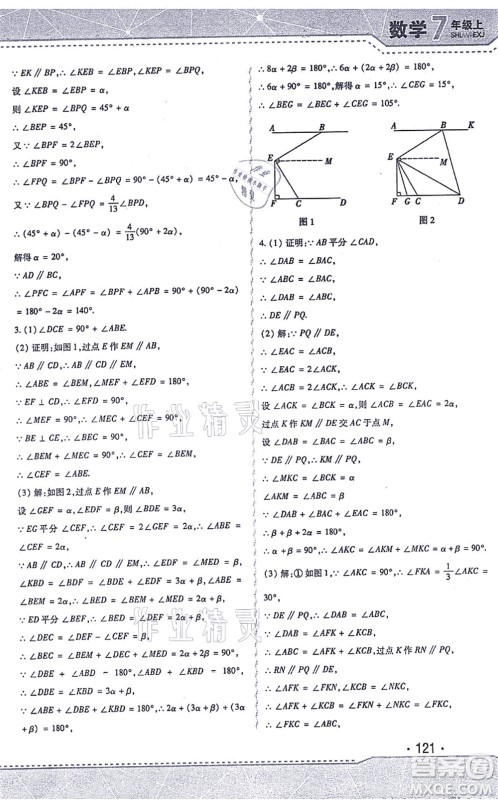 数学7年级上
SHUXUEXJ
∵EK∥BP,∴∠KEB=∠EBP,∠KEP=∠BPQ,
设∠KEB=∠EBP=α,
则∠KEP=∠BPQ=45°+α
∴∠BEP=45°,
又∵∠BPF=2∠BEP,
∴∠BPF=90°,
∴∠FPQ=∠BPF-∠BPQ=90°-(45°+α)=45°-α,
又∵∠BPQ-∠FPQ=4/13∠BPD,
∴(45°+α)-(45°-α)=4/13(90°+45°-α),
解得α=20°.
∵AD∥BC
∴∠PFC=∠APF=∠BPF+∠APB=90°+(90°-2α)
=180°-2α=140°.
3.(1)∠DCE=90°+∠ABE.
(2)证明:如图1,过点E作EM∥AB,
∵AB∥CD,∴AB∥CD∥EM,
∴∠ABE=∠BEM,∠MEF+∠EFD=180°,
∵EF⊥CD,∴∠EFD=90°,
∴∠MEF=90°,∴∠MEC+∠CEF=90°,
∵BE⊥CE,∴∠MEC+∠BEM=90°,
∴∠BEM=∠CEF,∴∠CEF=∠ABE.
(3)解:如图2,过点E作EM∥AB,
设∠GEF=α,∠EDF=β,则∠BDE=3β,
∵EG平分∠CEF,∴∠CEF=2∠FEG=2α,∴∠ABE
=∠CEF=2α,
∵AB∥CD∥EM,∴∠MED=∠EDF=β,
∠KBD=∠BDF=3β+β=4β,∠ABD+∠BDF=180°,
∴∠BED=∠BEM+∠MED=2α+β,∠ABE=
∠BEM=2α,
∵ED平分∠BEF,∴∠BED=∠FED=2α+β,
∴∠DEC=∠DEF-∠CEF=β,
∴∠BEC=∠BEM+∠MED+∠DEC=2α+2β=90°,
∵∠DBE+∠ABD=180°,∠ABD+∠KBD=180°,
∴∠DBE=∠KBD=4β,
∵∠ABE+∠DBE+∠KBD=180°,∴2α+(3α+β)+(3α
+β)=180°,
∴8α+2β=180°,
∴6α+90°=180°,解得α=15°,∴∠CEF=15°,
∴∠BEG=∠BEC+∠CEG=105°.
A B
E M
F C D
图1
A B K
E M
F G C D
图2
4.(1)证明:∵AB平分∠CAD,
∴∠DAB=∠BAC,
∵∠ABC=∠BAC,
∴∠DAB=∠ABC,
∴DE∥PQ.
(2)解:∵PQ∥DE,
∴∠EAC=∠ACB,
∵∠ACB=2∠ACK,∴∠EAC=2∠ACK,
设∠ACK=∠BCK=α,则∠ACB=∠EAC=2α,
过点K作KM∥DE交AC于点M,
设∠DAB=∠BAC=∠ABC=β,
∴∠MKC=∠BCK=α
∠AKM=∠ABC=β
∴β+β+2α=180°,
∴α+β=90°,
∴∠AKC=∠AKM+∠MKC=α+β=90°.
(3)解:①如图1,∵∠AKC=90°,∴∠FKA=1/3∠AKC=
30°,
∵DE∥PQ,∴∠DAB=∠ABC,
∵∠DAB=∠AFK+∠KCB,
∴∠ABC=∠AFK+∠KCB,过点K作RN∥PQ,
∴RN∥PQ∥DE,
∴∠AFK=∠FKN,∠KCB=∠NKC,
∴∠AFK+∠KCB=∠FKN+∠NKC,
∴∠FKC=∠AFK+∠KCB,
∴∠ABC=∠FKC,
·121·
作业精灵
作业精灵
答案圈
MXQE.COM